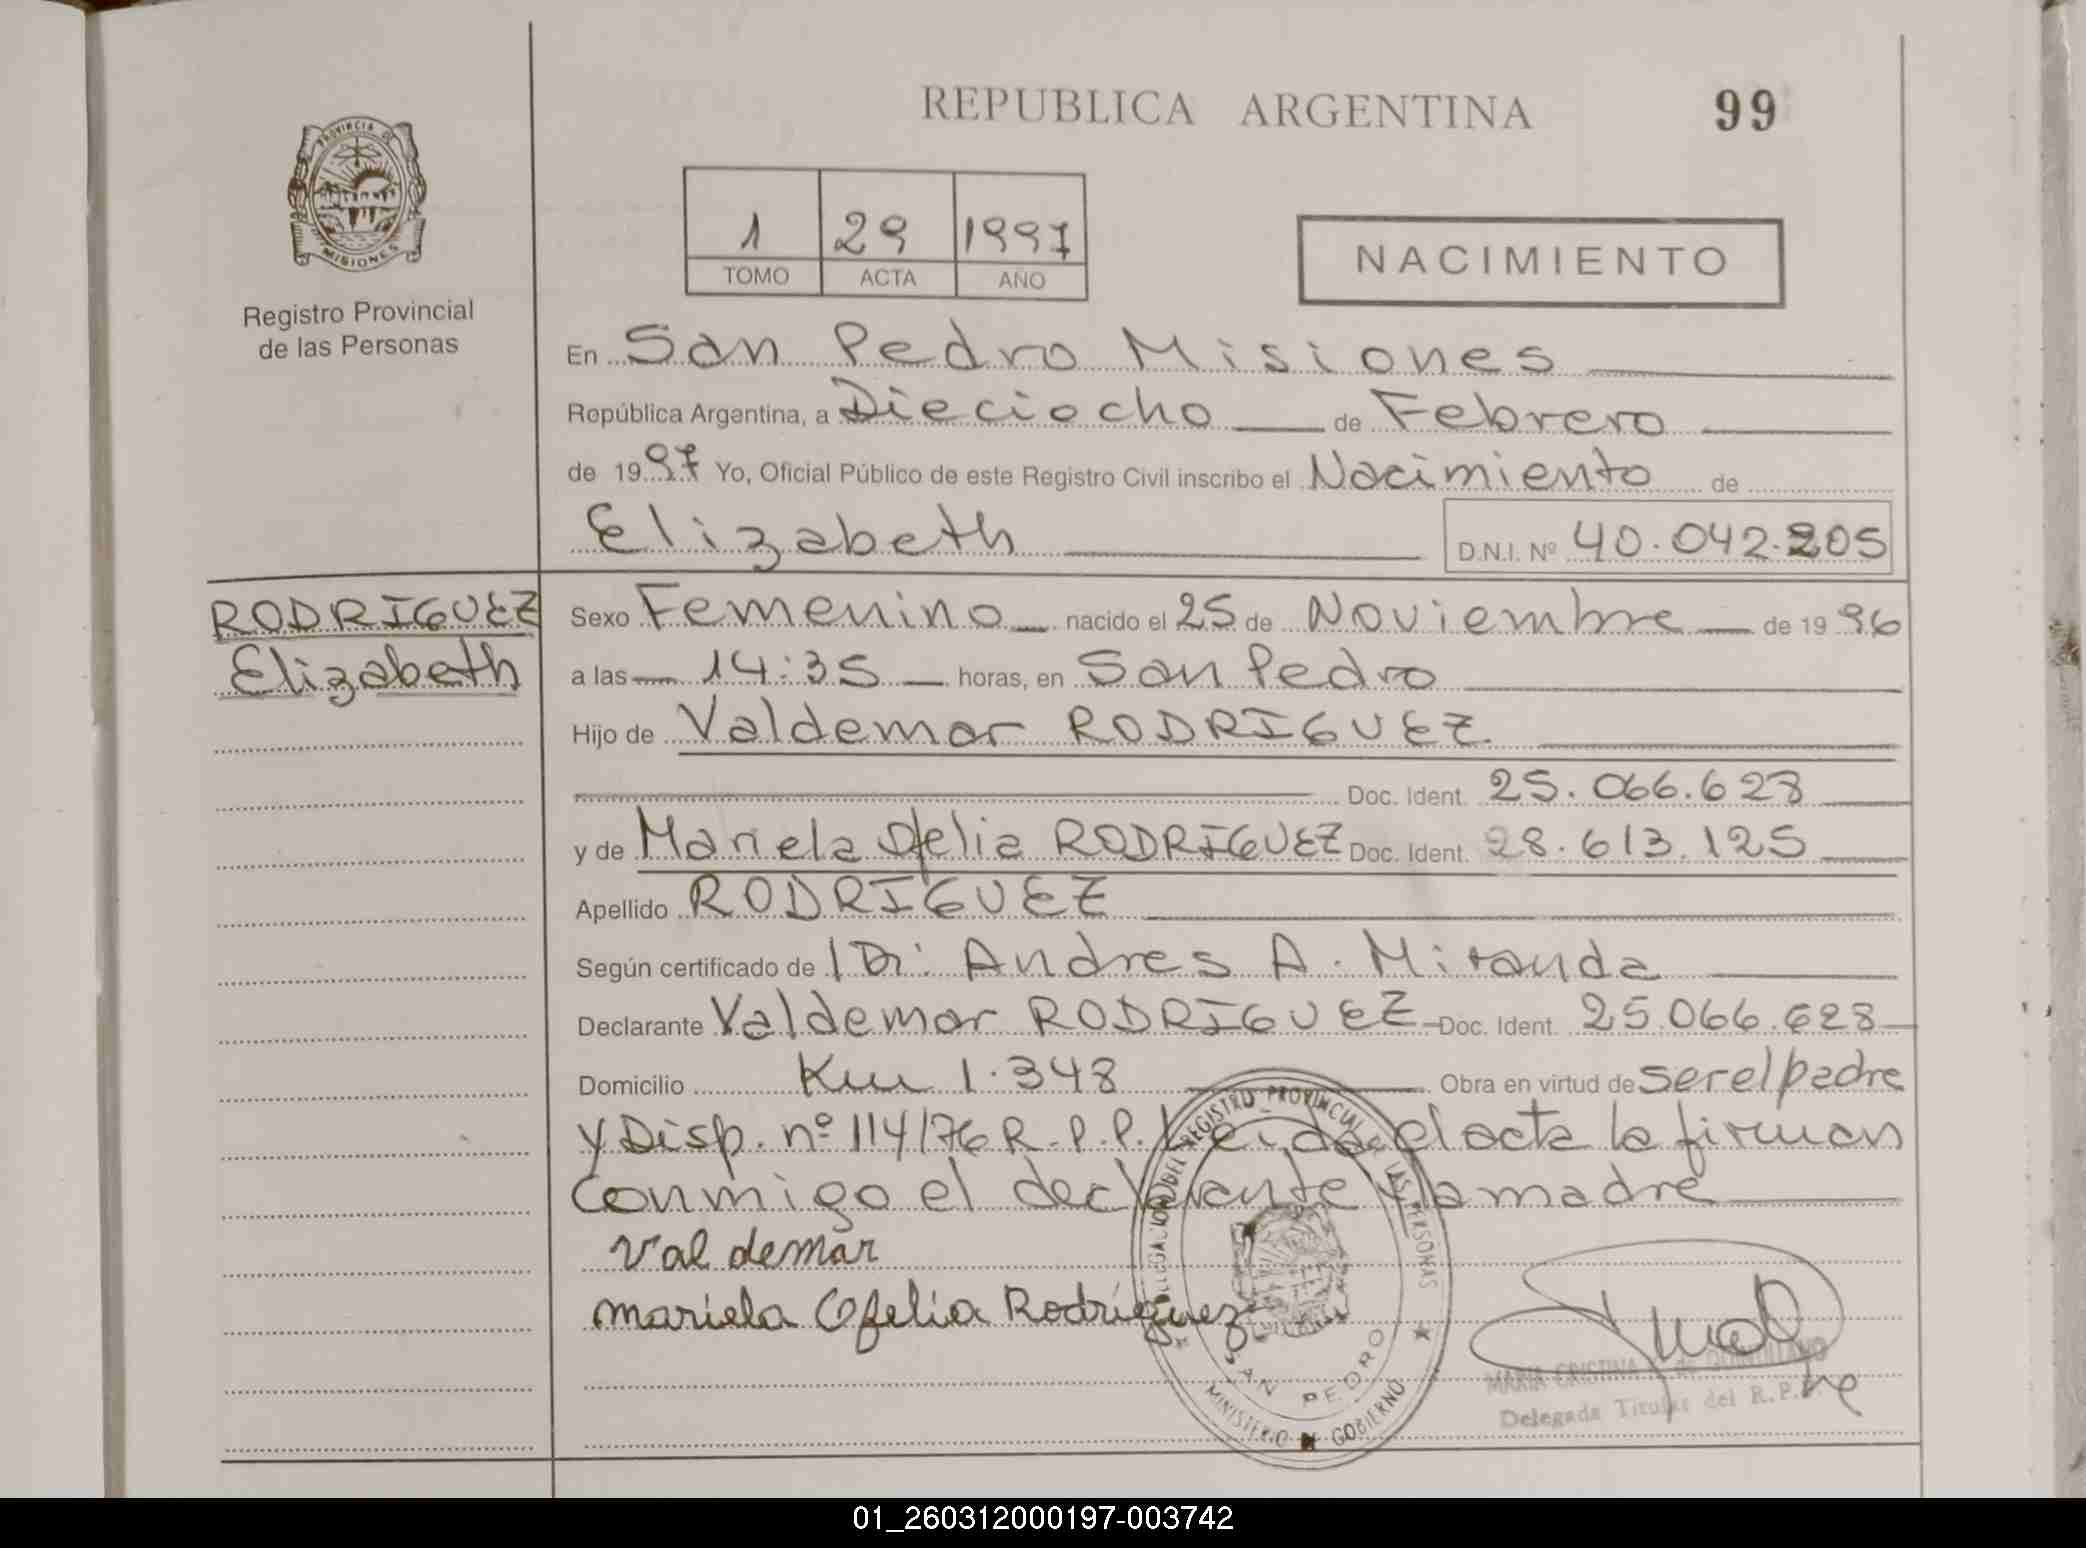 REPUBLICA ARGENTINA
99
PROVINCIA DE
MISIONES
Registro Provincial
de las Personas
1 29 1997
TOMO ACTA AÑO
NACIMIENTO
En San Pedro Misiones
República Argentina, a Dieciocho de Febrero
de 1997 Yo, Oficial Público de este Registro Civil inscribo el Nacimiento de
Elizabeth D.N.I. Nº 40.042.205
RODRIGUEZ
Elizabeth
Sexo Femenino nacido el 25 de Noviembre de 1996
a las 14:35 horas, en San Pedro
Hijo de Valdemar RODRIGUEZ
Doc. Ident. 25.066.628
y de Mariela Ofelia RODRIGUEZ Doc. Ident. 28.613.125
Apellido RODRIGUEZ
Según certificado de Dr. Andres A. Miranda
Declarante Valdemar RODRIGUEZ Doc. Ident. 25.066.628
Domicilio Km 1.348 Obra en virtud de ser el padre
y Disp. nº 114/76 R.P.P. Leida el acta la firman
conmigo el declarante y la madre
Valdemar
mariela Ofelia Rodríguez
DELEGACION DEL REGISTRO PROVINCIAL DE LAS PERSONAS
SAN PEDRO
MINISTERIO DE GOBIERNO
MARIA CRISTINA de
Delegada Titular del R.P.
01_260312000197-003742